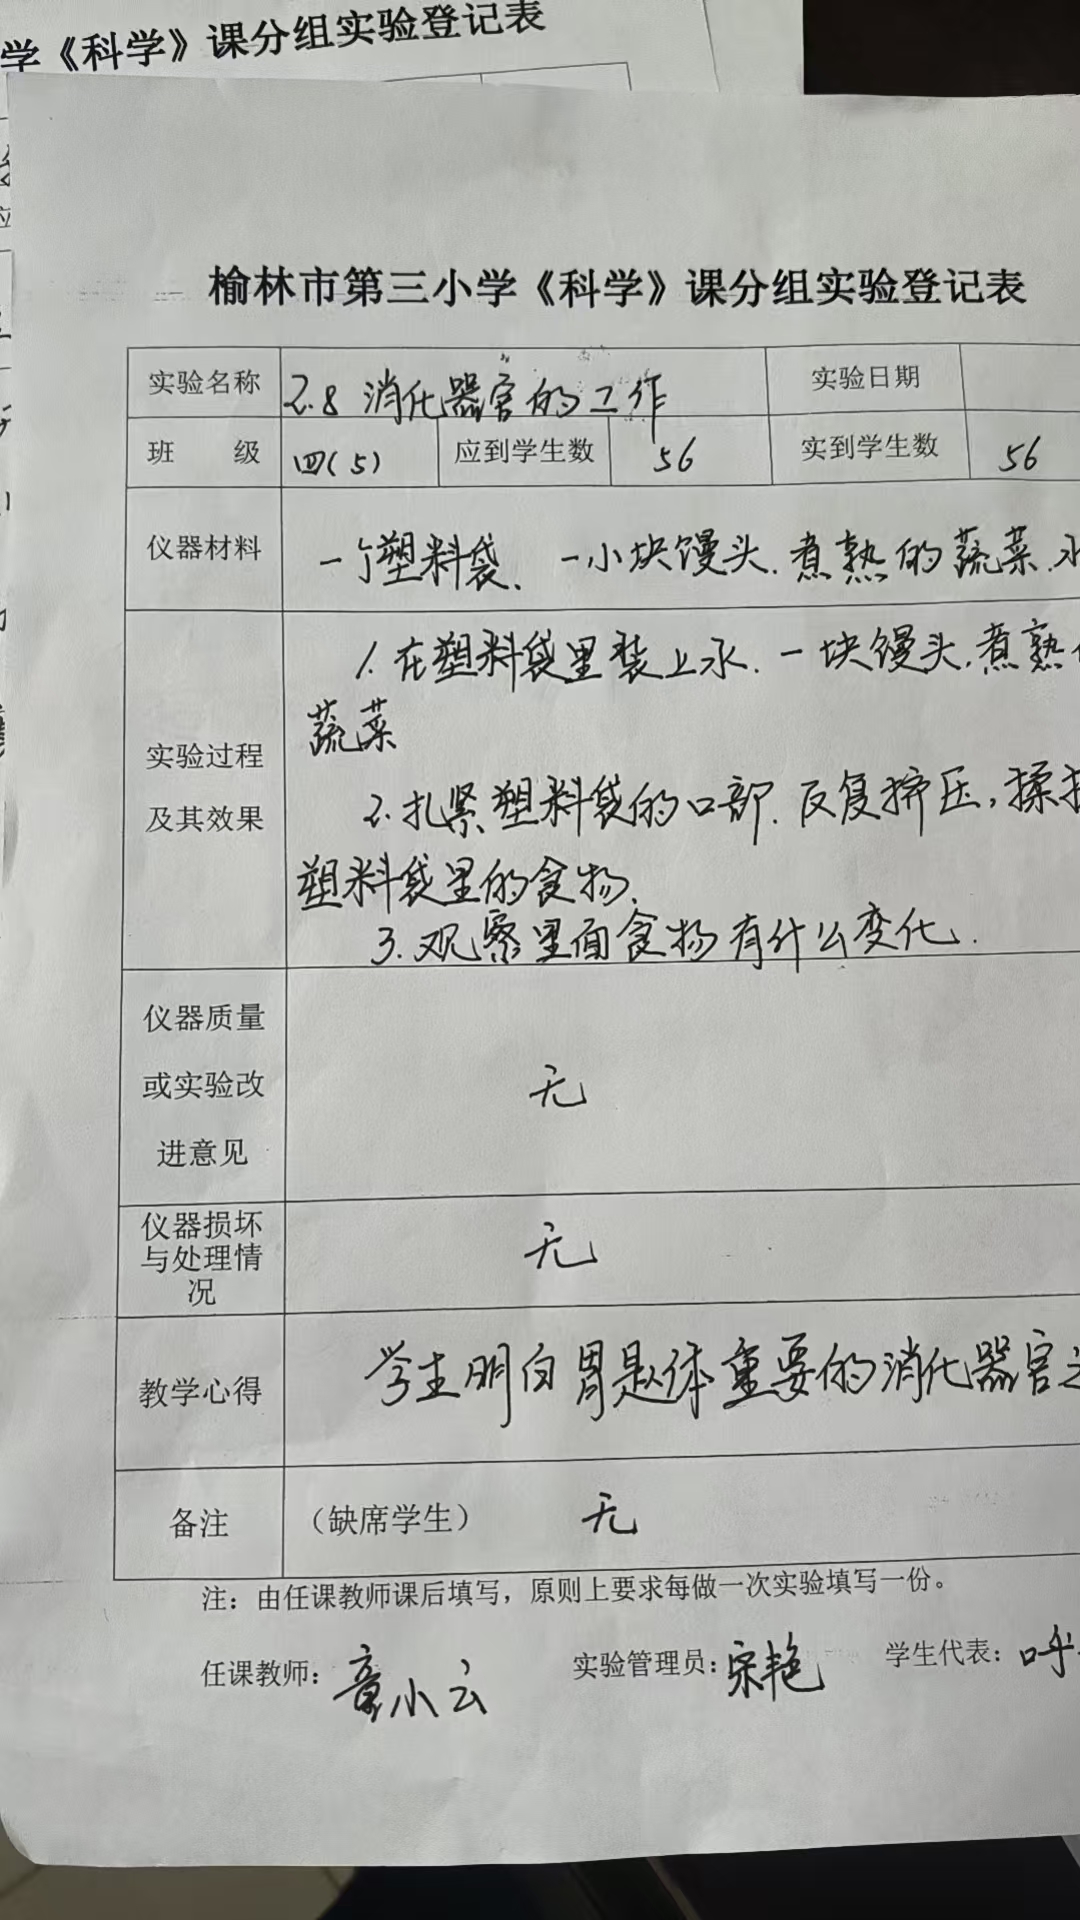 学《科学》课分组实验登记表
榆林市第三小学《科学》课分组实验登记表
实验名称 2.8 消化器官的工作 实验日期
班 级 四(5) 应到学生数 56 实到学生数 56
仪器材料 一个塑料袋、一小块馒头.煮熟的蔬菜.水
1.在塑料袋里装上水.一块馒头.煮熟
蔬菜
实验过程
及其效果
2.扎紧塑料袋的口部.反复挤压,揉
塑料袋里的食物.
3.观察里面食物有什么变化.
仪器质量
或实验改
进意见
无
仪器损坏
与处理情
况
无
教学心得 学生明白胃是体重要的消化器官
备注 (缺席学生) 无
注：由任课教师课后填写，原则上要求每做一次实验填写一份。
任课教师：童小云 实验管理员：宋艳 学生代表：呼